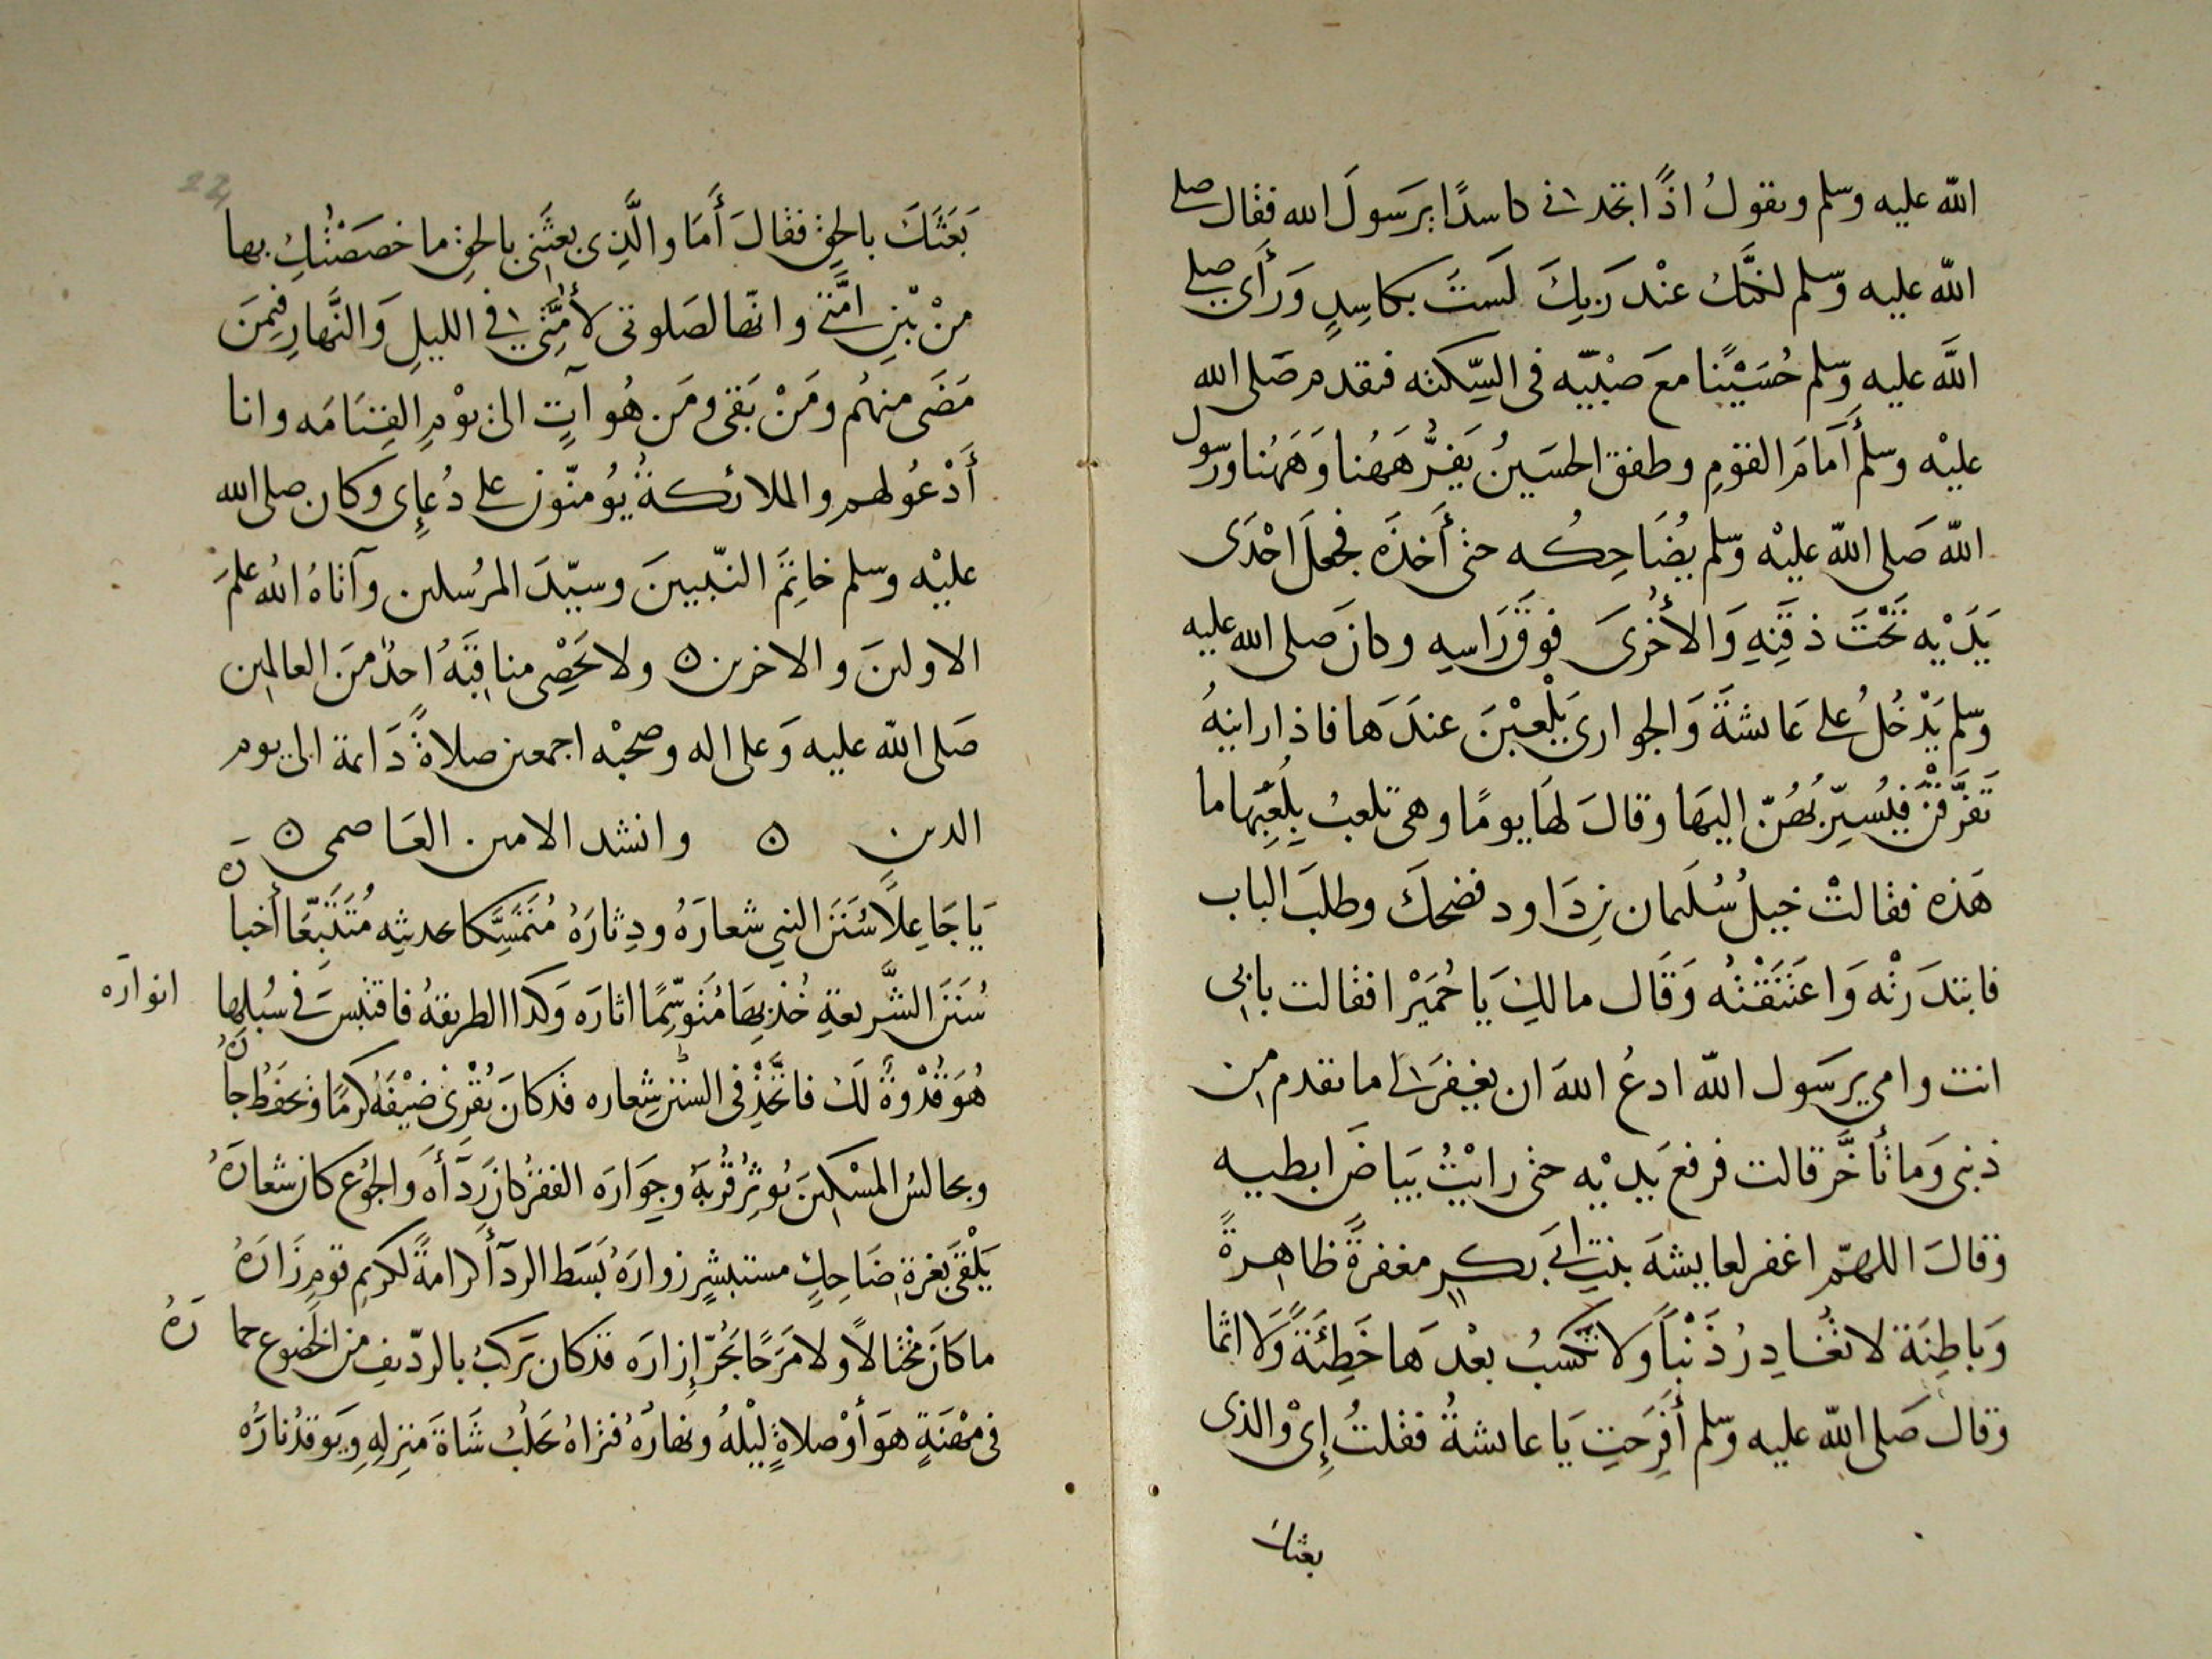 الله عليه وسلم ويقول اذًا تجدني كاسدًا يرسول الله فقال صلى
الله عليه وسلم لكنك عند ربك لست بكاسدٍ ورأى صلى
الله عليه وسلم حُسَيْنًا مع صبْيَه في السّكة فتقدم صلى الله
عليْه وسلم أمام القوم وطفق الحسَينُ يَفرُّ هَهُنا وَهَهُنا ورسول
الله صلى الله عليْه وسلم يُضَاحِكُه حتى أخذَه فجعل احْدَى
يَدَيْه تَحْتَ ذقَنِهِ وَالأُخْرىَ فوقَ رَاسِهِ وكان صلى الله عليه
وسلم يَدْخُلُ على عَائشةَ وَالجواري يَلْعبْنَ عندَها فاذا راينهُ
تَفَرَّقْنَ فيُسيِّربهُنّ اليهَا وقالَ لهَا يومًا وهي تلعبُ بِلُعَبِهَا ما
هَذه فقالتْ خيلُ سُلَيمان بن دَاود فضحكَ وطلبَ الباب
فابتدَرَتْه وَاعتَنَقَتْه وَقَال مالكِ يَا حُمَيْرا فقالت بابي
انت وامي يرسَول الله ادعُ اللهَ ان يغفِرَ لي ما تقدم من
ذنبي وَما تأخَّر قالت فرفع يَديْه حتى رايْتُ بيَاضَ ابطيه
وقالَ اللهمّ اغفر لعايشَة بنتِ ابي بكرٍ مغفرةً ظاهِرةً
وَباطِنَة لا تُغادِرُ ذَنْباً ولا تكسبُ بعْدَها خَطِئَةً وَلَا اثما
وقال صَلى الله عليه وسلم أفَرِحَتِ يَا عائشةُ فقلتُ إِيْ والذي
بعثك
بَعَثَكَ بالحق فقالَ أَمَا والَّذِي بعثَني بالحق ما خصَصْتُكِ بها
منْ بْينِ امَّتي وانّها لصَلوتي لأمَّتي في الليلِ وَالنَّهارِ فيمنَ
مَضَى منهُم ومَنْ بَقى ومَن هُو آتٍ الى يوْمِ القِيَامَه وانا
أَدْعُولهم والملائكةُ يُومنّون على دُعاِي وكان صلى الله
عليْه وسلم خاتِمَ النّبيينَ وسيّدَ المرُسلين وآتاهُ الله علمَ
الاولينَ والاخرين ولا يُحْصِي مناقبَهُ احدٌ منَ العالمين
صَلى الله عليه وَعلى اله وصحبْه اجمعين صلاةً دَائمة الى يوم
الدين وانشد الامين العَاصمى
يَا جَاعِلاً سُنَنَ النبي شعارَهُ ودِثارَهُ مُتَمَسِّكا بحديثِه مُتَتَبِّعًا أخبارَه
سُنَنَ الشَّريعةِ خُذ بِهَا مُتَوسِّمًا اثارَه وَكذا الطريقةُ فاقتبسَ في سُبلِها انوارَه
هُوَ قُدْوةٌ لَكَ فاتَّخِذْ في السننِ شِعاره قد كان يُقْري ضيْفَهُ كرمًا ويحفَظُ جارَهُ
ويجالسُ المسْكينَ يُوثِرُ قُربَهُ وجِوَارَه الفقرُ كان رِدَآَهُ وَالجُوع كان شعارَهُ
يَلْقى بغرةِ ضَاحِكٍ مستبشرٍ زوارَهُ بَسَط الردآَ كرامةً لكريم قومٍ زَارَهُ
ما كَانَ مختالاً ولا مَرَحًا يَجُرّ إِزارَه قد كان يَركبُ بالرّديف من الخضوع حمارَهُ
في مهْنَةٍ هوَ أوْ صلاةٍ ليْلَهُ ونهارَهُ فتراهُ يَحلُبُ شَاةَ منزلِهِ وَيوقدُ نارَهُ